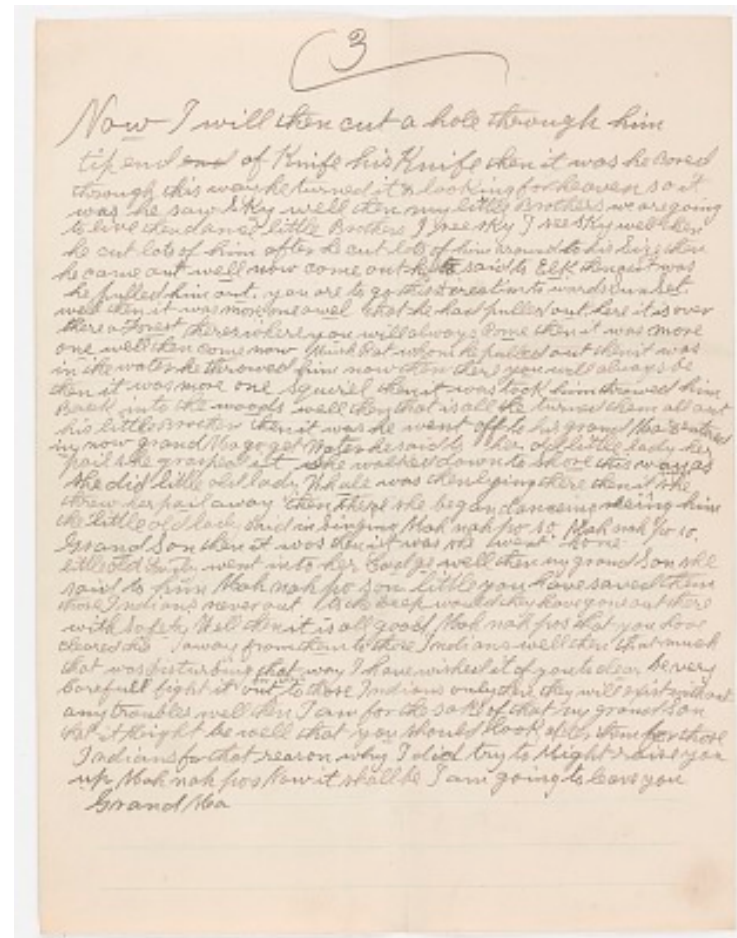 3
Now I will then cut a hole through him
tip end end of Knife his Knife then it was he bored
through this way he turned it & looking for heaven so it
was he saw Sky well then my little Brothers we are going
to live then dance little Brothers I see sky I see Sky well then
he cut lots of him after he cut lots of him around to his Size then
he came out well now come out he said to Elk then it was
he pulled him out. you are to go this direction towards sun set
well then it was more one owel that he had pulled out here it is over
there a Forest there is where you will always Come then it was more
one well then come now Musk Rat whom he pulled out then it was
in the water he throwed him now then there you will always be
then it was more one Squirel then it was took him throwed him
Back into the woods well then that is all he turned them all out
his little Brother then it was he went off to his grand Ma entered
in now grand Ma go get Water he said to her old little lady her
pail she grasped it she walked down to shore this way as
she did little old lady Whale was then lying there then it she
threw her pail away then there she began dancing seeing him
the little old lady said in singing Mah nah po so, Mah nah po so,
Grand Son then it was then it was she went home
little old lady went into her Lodge well then my grand Son she
said to him Mah nah po son little you have saved them
those Indians never out to the deep would they have gone out there
with safety Well then it is all good Mah nah pos that you have
cleared away from them to those Indians well then that much
that was disturbing that way I have wished it of you to clear be very
Carefull fight it out to those Indians only there they will exist without
any troubles well then I am for the sake of that my grand Son
that it might be well that you should look after them for those
Indians for that reason why I did try to Might raise you
up Mah nah pos Now it shall be I am going to leave you
Grand Ma